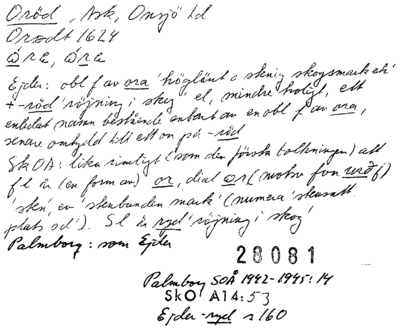 Oröd, Ask, Onsjö hd
Orødt 1624
Ǫ́RE, Ǫ́RE
Ejder: obl f av ora 'höglänt o stenig skogsmark el'
+ -röd 'röjning i skog' el, mindre troligt, ett
enledat namn bestående enbart av en obl f av ora,
senare ombytt till ett on på -röd
SkOA: lika rimligt (som den första tolkningen) att
fl är (en form av) or, dial (motsv fvn urð f)
'sten', ev 'stenbunden mark' (numera 'stensatt
plats od'). Sl är ryd 'röjning i skog'
Palmborg: som Ejder
28081
Palmborg SOÅ 1942-1945:14
SkO A14:53
Ejder -ryd s 160